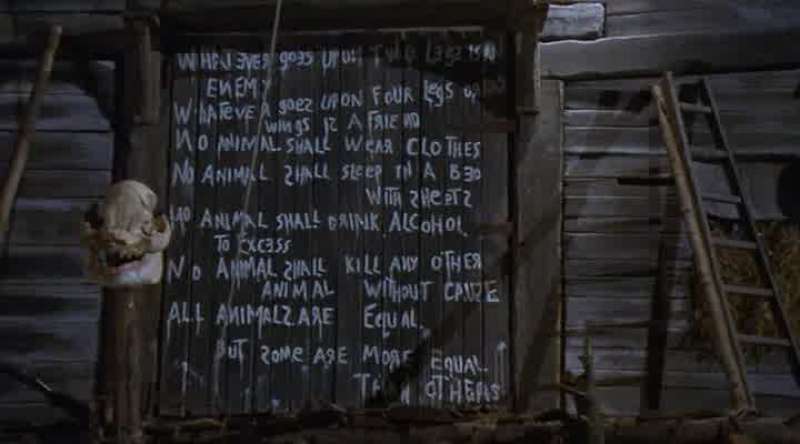 WHATEVER goes UPON TWO LEGS IS AN
ENEMY
WHATEVER goes UPON FOUR Legs OR HAS
WINGS IS A FRIEND
NO ANIMAL SHALL WEAR CLOTHES
NO ANIMAL SHALL SLEEP IN A BED
WITH SHEETS
NO ANIMAL SHALL DRINK ALCOHOL
TO EXCESS
NO ANIMAL SHALL KILL ANY OTHER
ANIMAL WITHOUT CAUSE
ALL ANIMALS ARE EQUAL.
BUT SOME ARE MORE EQUAL
THAN OTHERS